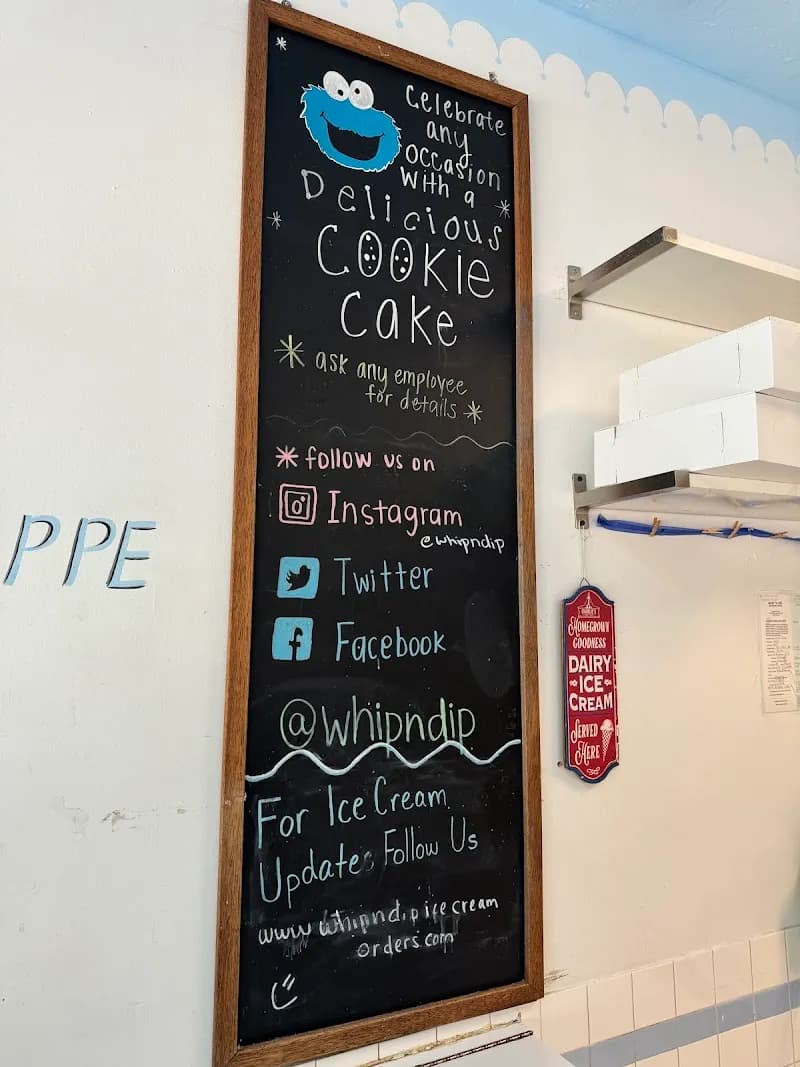 Celebrate
any
occasion
with a
Delicious
COOKie
Cake
ask any employee
for details
follow us on
Instagram
@whipndip
Twitter
Facebook
@whipndip
For Ice Cream
Updates Follow Us
www.whipndipicecream
orders.com
PPE
HOMEGROWN
GOODNESS
DAIRY
ICE
CREAM
SERVED
HERE